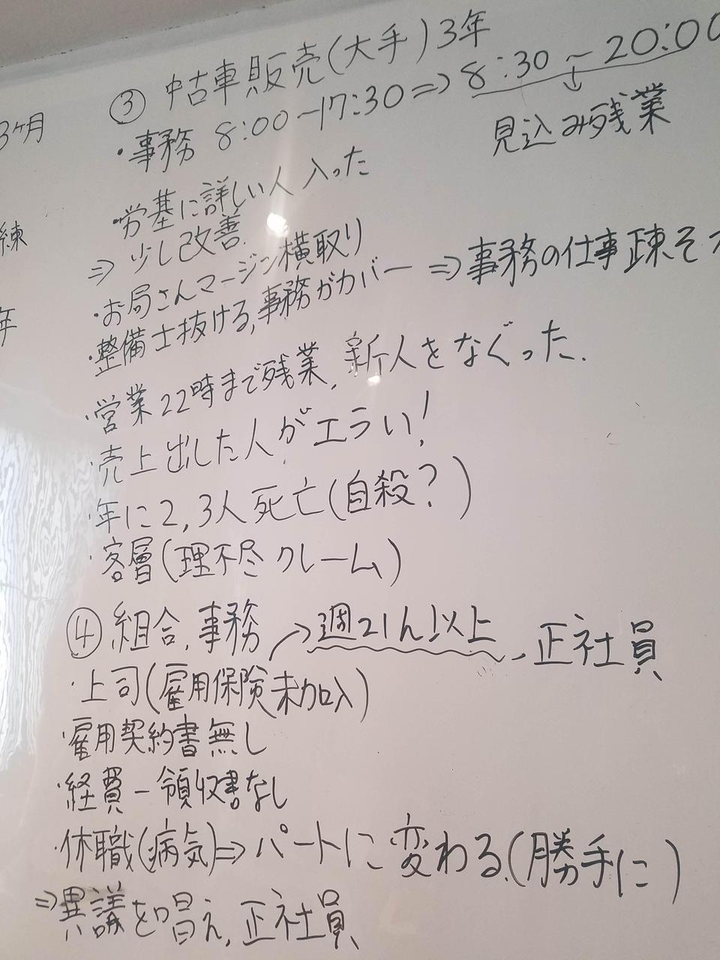 3ヶ月
練
年
③ 中古車販売(大手)3年
・事務 8:00-17:30⇒8:30~20:00
↓
見込み残業
・労基に詳しい人入った
⇒ 少し改善
・お局さんマージン横取り
・整備士抜ける,事務がカバー ⇒事務の仕事疎そ
・営業22時まで残業,新人をなぐった.
・売上出した人がエラい!
・年に2,3人死亡(自殺?)
・客層(理不尽クレーム)
④ 組合,事務 →週21h以上 、正社員
・上司(雇用保険未加入)
・雇用契約書無し
・経費-領収書なし
・休職(病気)⇒パートに変わる(勝手に)
⇒異議を唱え,正社員